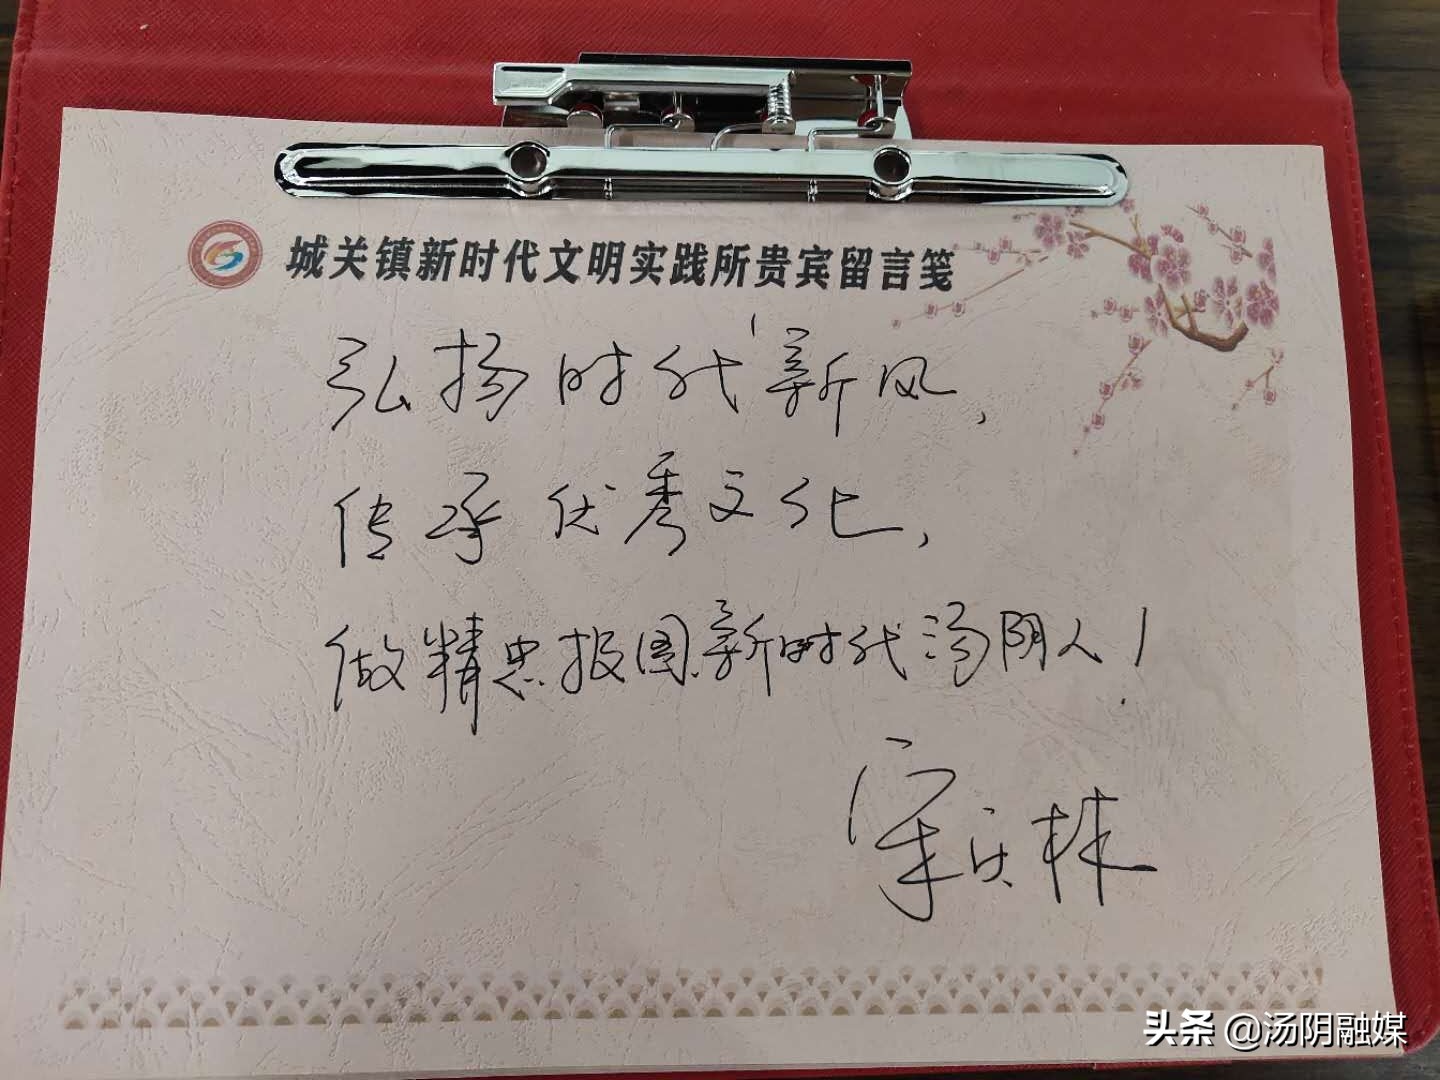 城关镇新时代文明实践所贵宾留言笺
弘扬时代新风,
传承优秀文化,
做精忠报国新时代汤阴人!
宋庆林
头条 @汤阴融媒